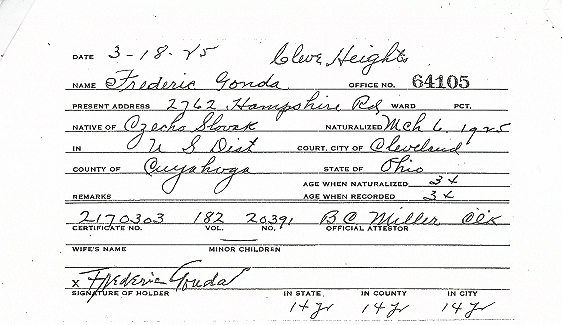 DATE 3-18-25 Cleve Heights
NAME Frederic Gonda OFFICE NO. 64105
PRESENT ADDRESS 2762 Hampshire Rd, WARD PCT.
NATIVE OF Czecho Slovak NATURALIZED Mch 6, 1925
IN U S Dist COURT, CITY OF Cleveland
COUNTY OF Cuyahoga STATE OF Ohio
AGE WHEN NATURALIZED 34
REMARKS AGE WHEN RECORDED 34
2170303 182 20391 B C Miller Clk
CERTIFICATE NO. VOL. NO. OFFICIAL ATTESTOR
WIFE'S NAME MINOR CHILDREN
x Frederic Gonda
SIGNATURE OF HOLDER IN STATE IN COUNTY IN CITY
14 yr 14 yr 14 yr